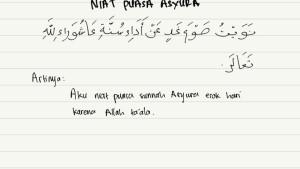 NIAT PUASA ASYURA
نَوَيْتُ صَوْمَ غَدٍ عَنْ أَدَاءِ سُنَّةِ عَاشُورَاءَ لِلّٰهِ
تَعَالَى.
Artinya:
Aku niat puasa sunnah Asyura esok hari
karena Allah ta'ala.